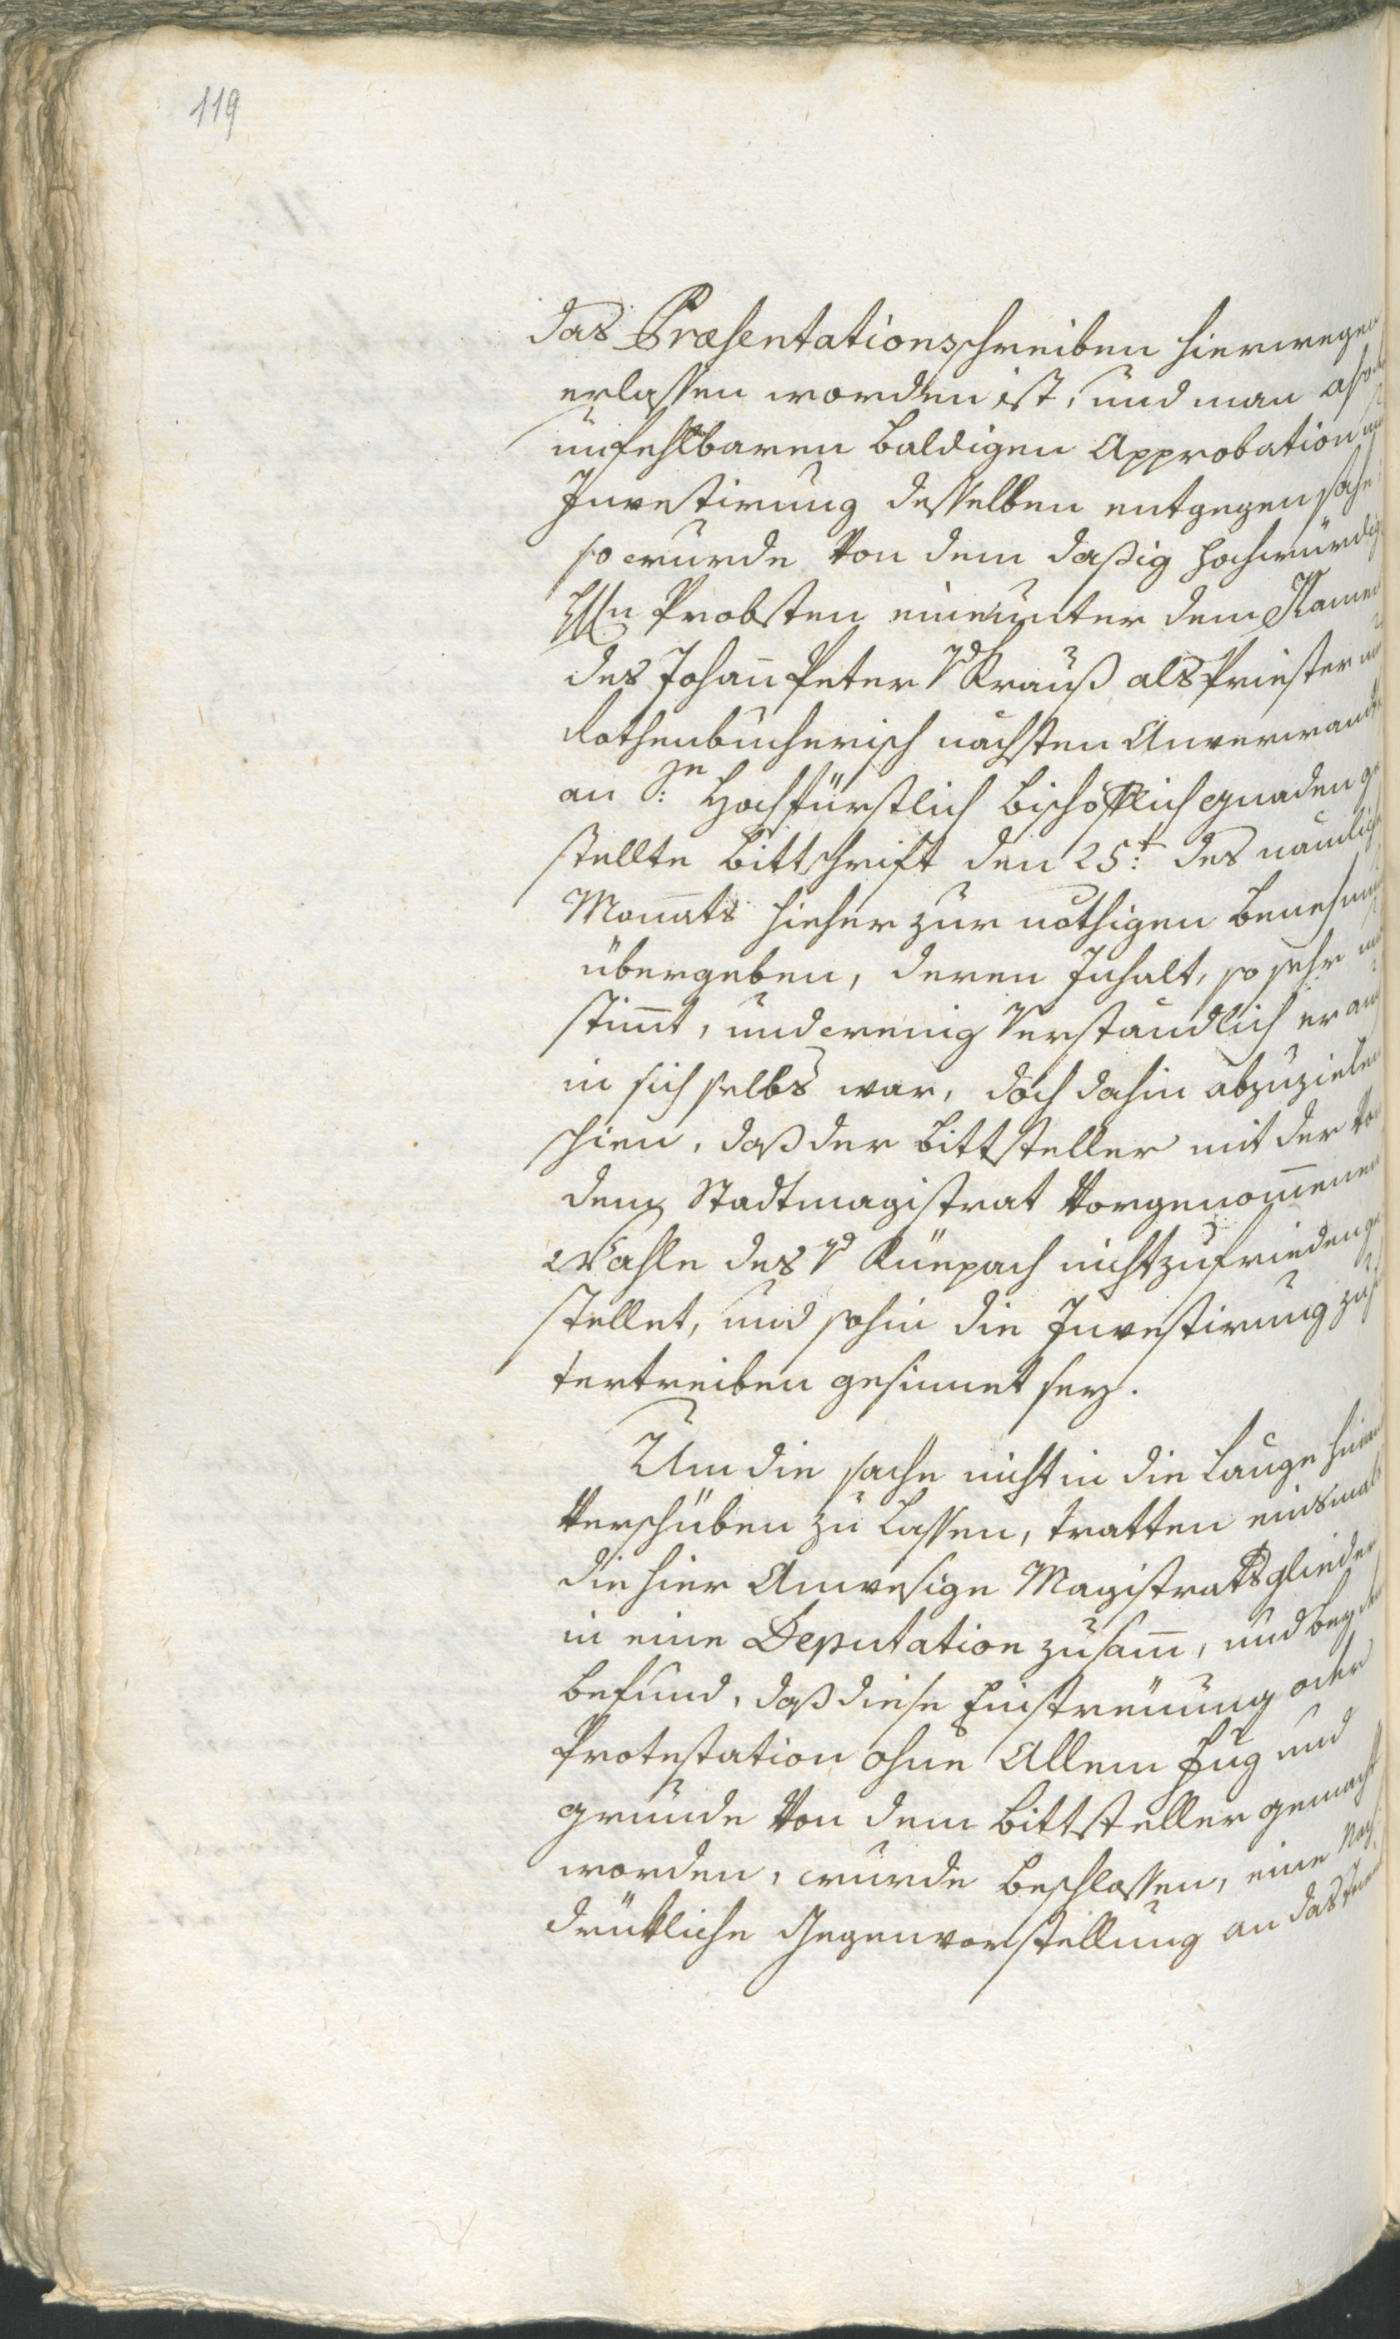 119
das Præsentationsschreiben hierwegen
erlassen worden ist, und man
unfehlbaren baldigen Approbation
Investirung desselben entgegen sahe
so wurde von dem dasig hochwürdig
Hrn Probsten eine unter dem Namen
des Johan̄ Peter v Krauß als Priester
Rothenbucherisch nächsten Anverwandte
an Se: Hochfürstlich bischöflich Gnaden ge
stellte Bittschrift den 25:t des nämlich
Monnats hieher zur nöthigen Benehmu
übergeben, deren Inhalt, so sehr
stim̄t, und wenig verständlich er
in sich selbs war, doch dahin abzuzielen
schien, daß der Bittsteller mit der von
dem Stadtmagistrat vorgenom̄enen
Wahle des v Küepach nicht zufrieden ge
stellet, und sohin die Investirung
tertreiben gesinnet sey.
Um die sache nicht in die Lange
verschüben zu lassen, tratten einsmals
die hier Anwesige Magistratsglieder
in eine Deputation zusam̄, und
befund, daß diese Einstreüung oder
Protestation ohne Allem fug und
gründe von dem Bittsteller gemacht
worden, wurde beschlossen, eine Nach
drükliche Gegenvorstellung an das